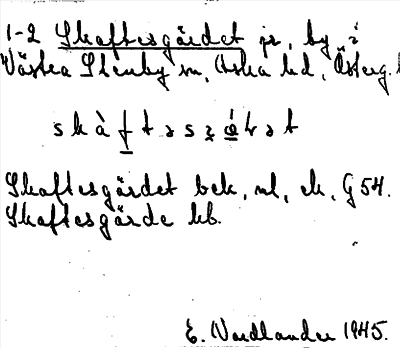 1-2 Skaftesgärdet gr, by i
Västra Stenby sn, Aska hd, Österg. l
s k à f t ə s z œ́ r ə t
Skaftesgärdet bek, ml, ek, G 54.
Skaftesgärde kb.
E. Nordlander 1945.